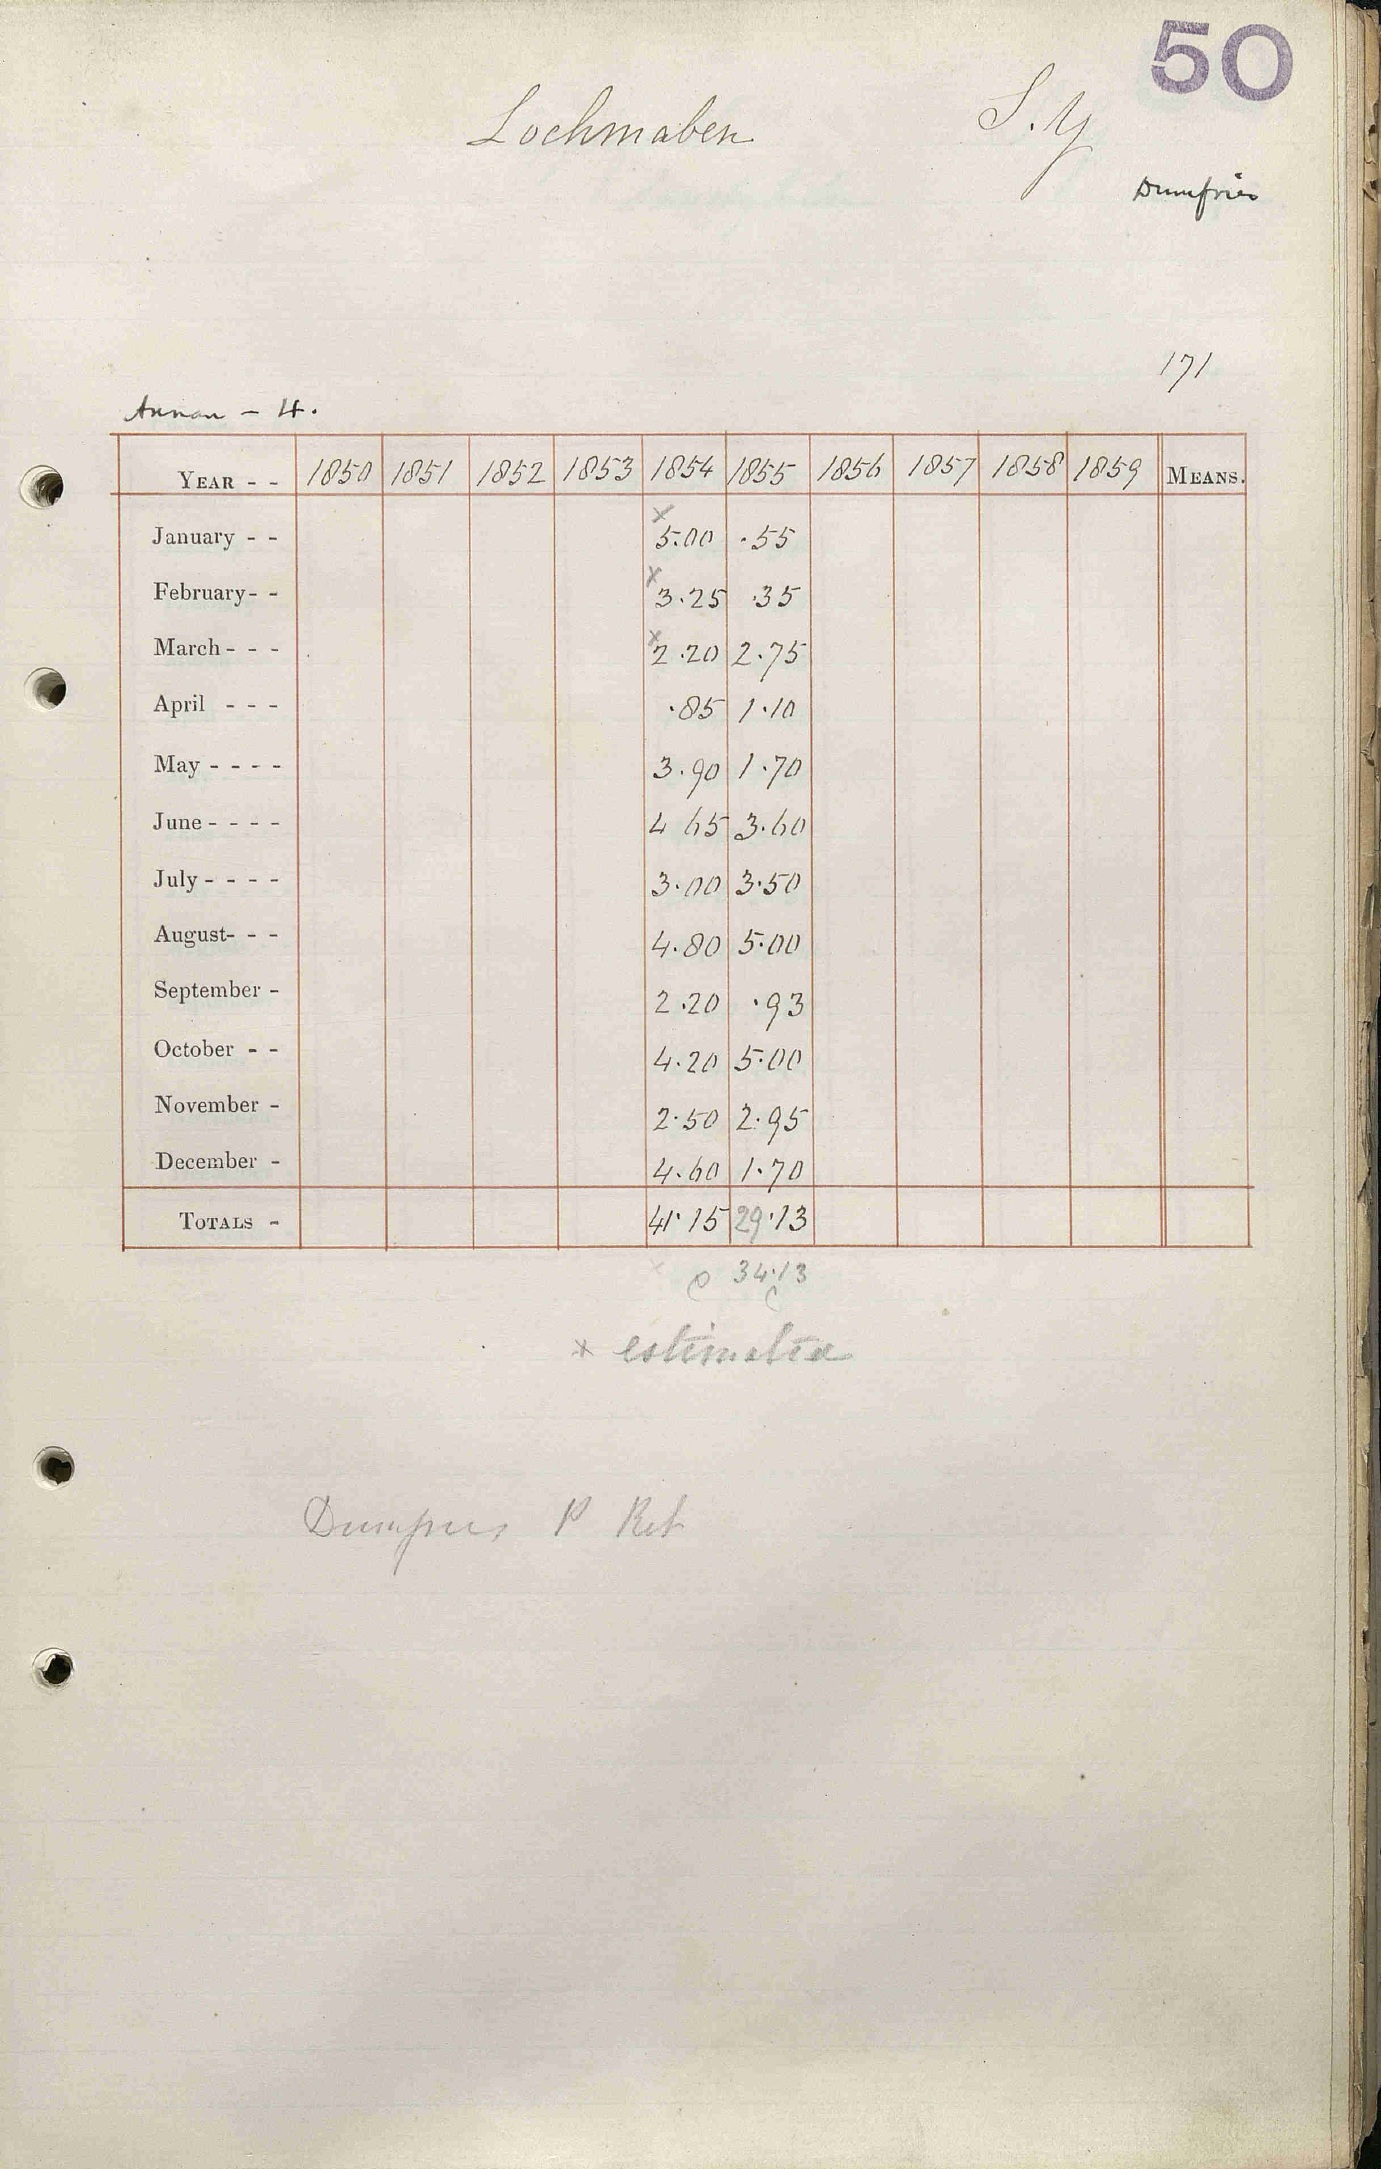 50
Lochmaben S.Y
Dumfries
171
Annan - 4.
YEAR - - 1850 1851 1852 1853 1854 1855 1856 1857 1858 1859 MEANS.
January - - x 5.00 .55
February - - x 3.25 .35
March - - - x 2.20 2.75
April - - - .85 1.10
May - - - - 3.90 1.70
June - - - - 4 65 3.60
July - - - - 3.00 3.50
August - - - 4.80 5.00
September - 2.20 .93
October - - 4.20 5.00
November - 2.50 2.95
December - 4.60 1.70
TOTALS - 41.15 29.13
c 34.13
c
x estimated
Dumfries P Ret